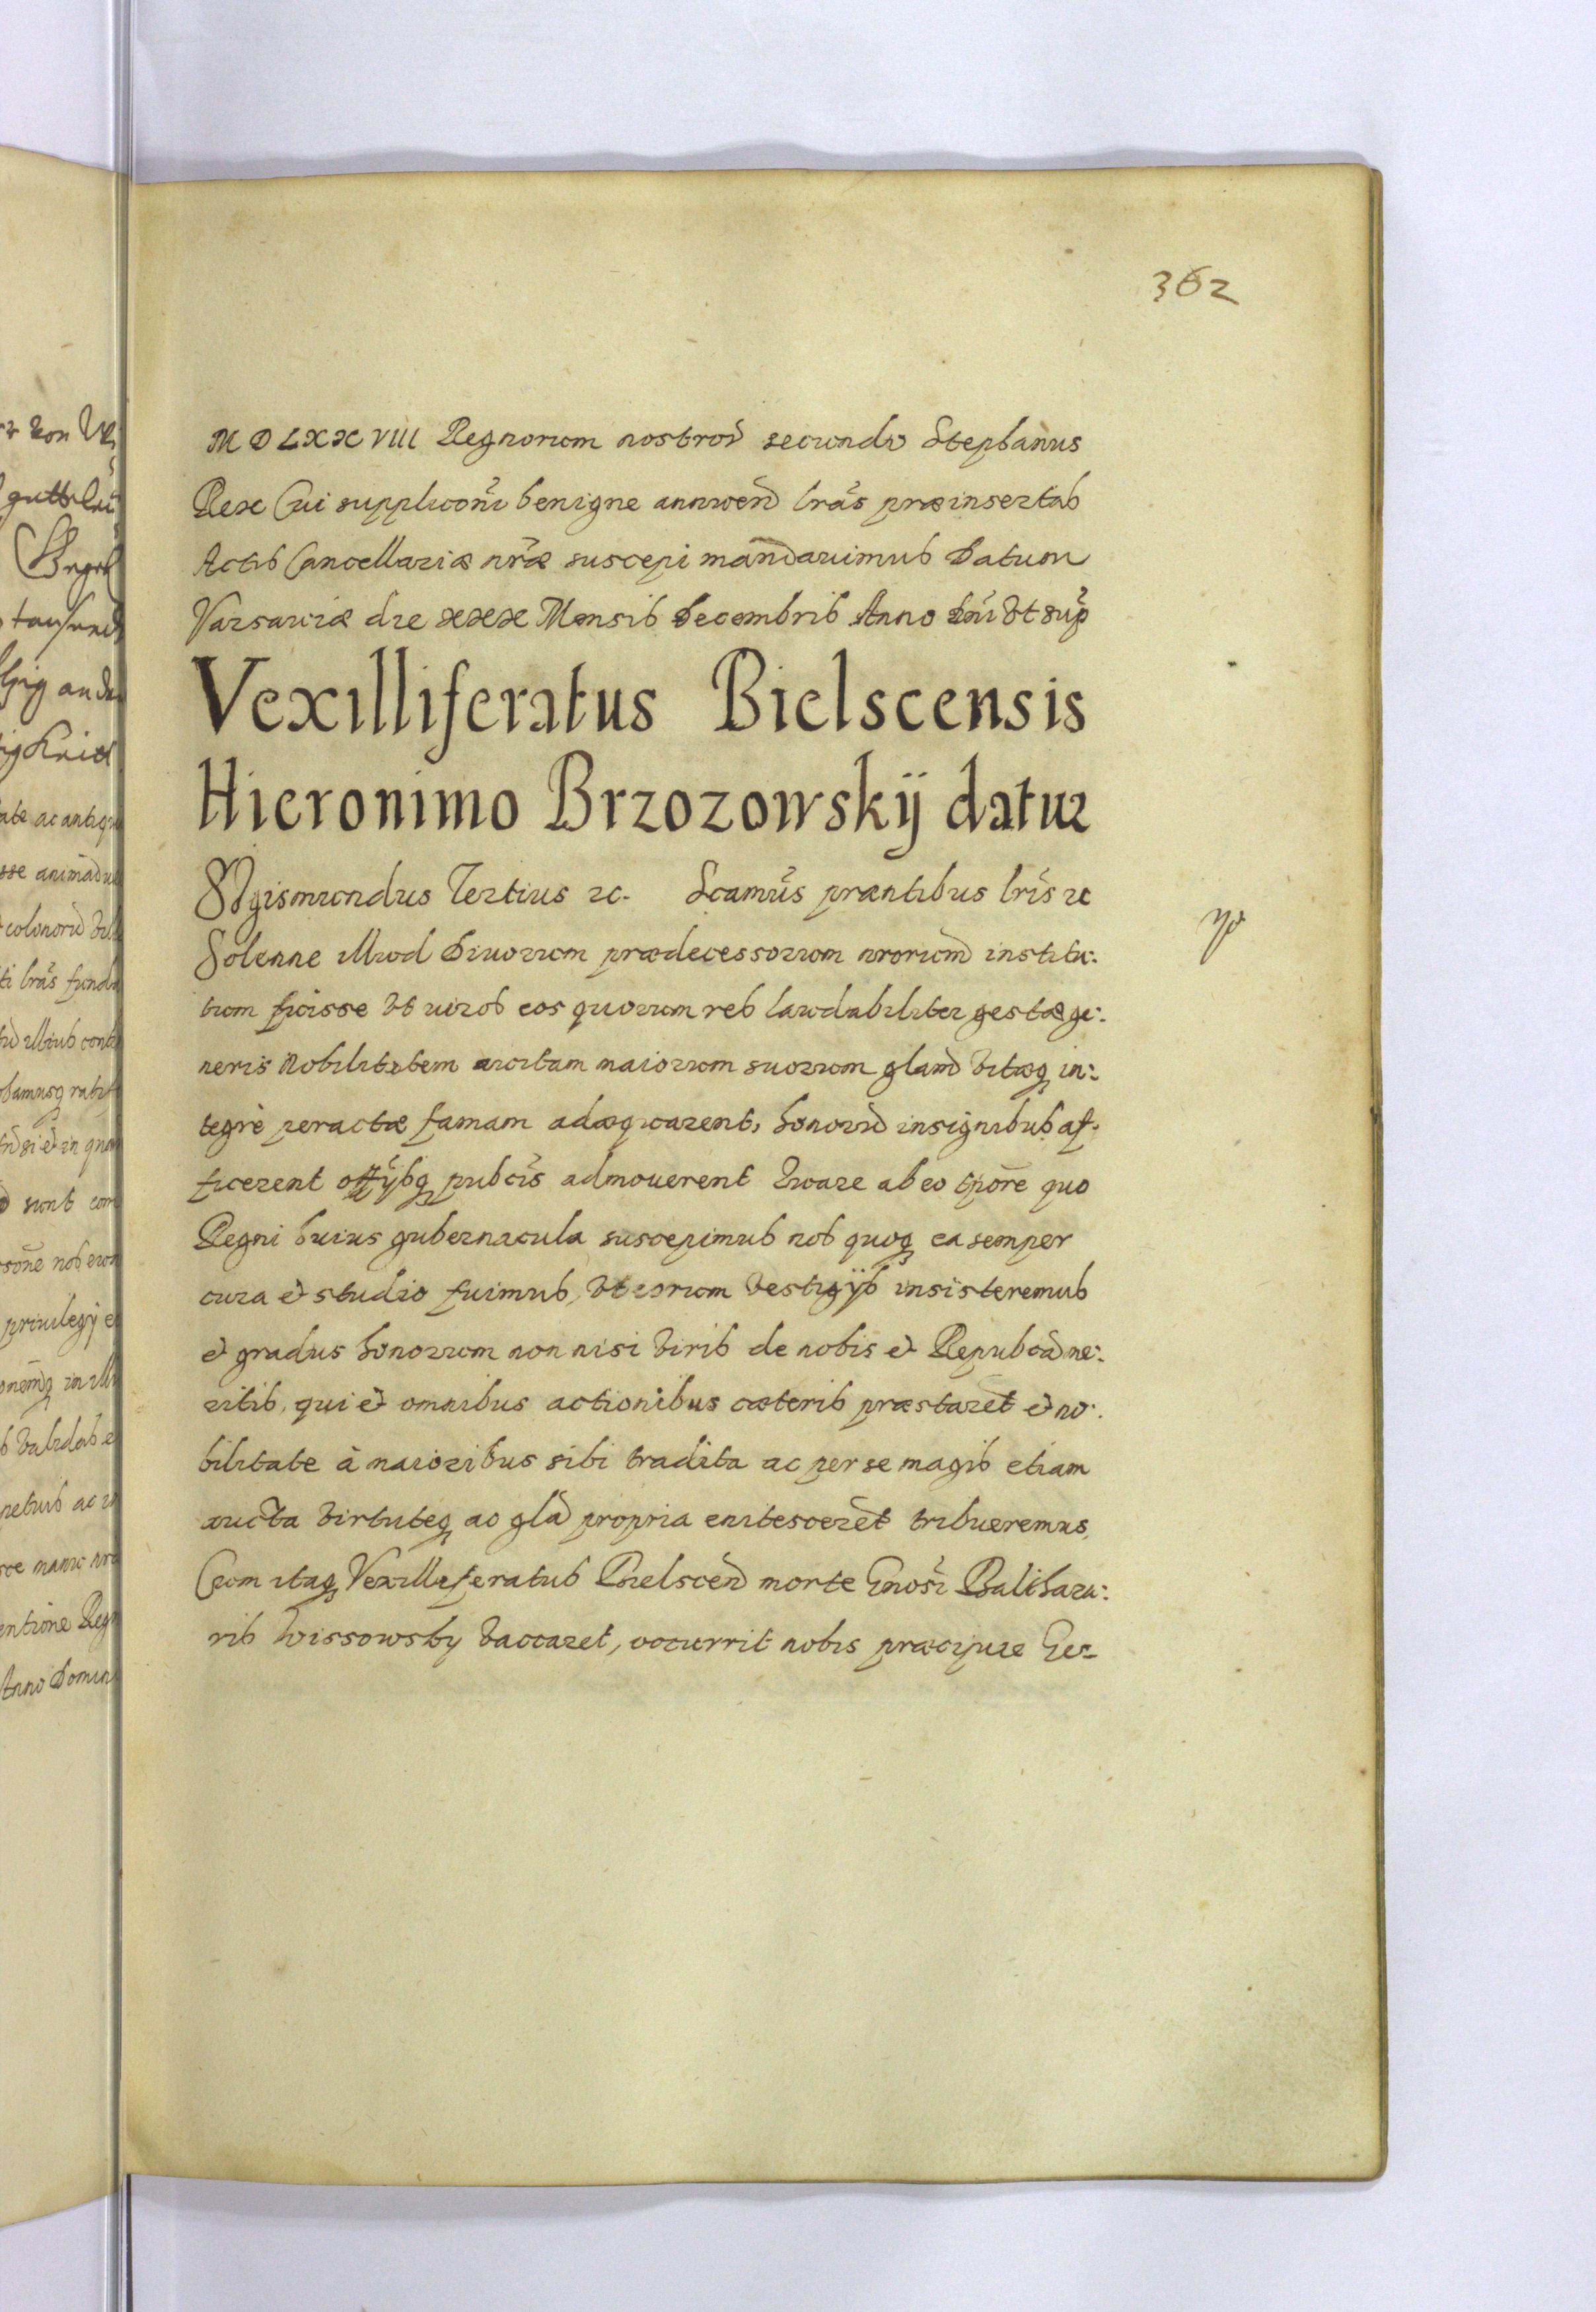 362
MDLXXVIII Regnorum nostror̃ secundo Stephanus
Rex Cui supplicõni benigne annuen̄ lrãs præinsertas
Actis Cancellariæ nr̃æ suscepi mandauimus Datum
Varsauiæ die xxx Mensis Decembris Anno Dñi Vt sup̃
Vexilliferatus Bielscensis
Hieronimo Brzozowskÿ datur
Sigismundus Tertius ꝛc. Scamus̃ præntibus lrĩs ꝛc
Solenne illud Diuorum prædecessorum nrorum institu:
tum fuisse Vt viros eos quorum res laudabiliter gestæ ge:
neris Nobilitatem auitam maiorum suorum glam̃ Vitæq in:
tegrè peractæ famam adæquarent, honorũ insignibus af:
ficerent offÿsq pubcĩs admouerent Quare ab eo tpõre quo
Regni huius gubernacula suscepimus nos quoq ea semper
cura et studio fuimus, Vt eorum Vestigÿs insisteremus
et gradus honorum non nisi Viris de nobis et Repubca me:
ritis, qui et omnibus actionibus cæteris præstarẽt et no:
bilitate à maioribus sibi tradita ac per se magis etiam
aucta Virtuteq ac glã propria enitescerẽt tribueremus,
Cum itaq Vexilliferatus Bielscen̄ morte Gnosĩ Balthaza:
ris Wissowsky Vaccaret, occurrit nobis præcipue Ge-